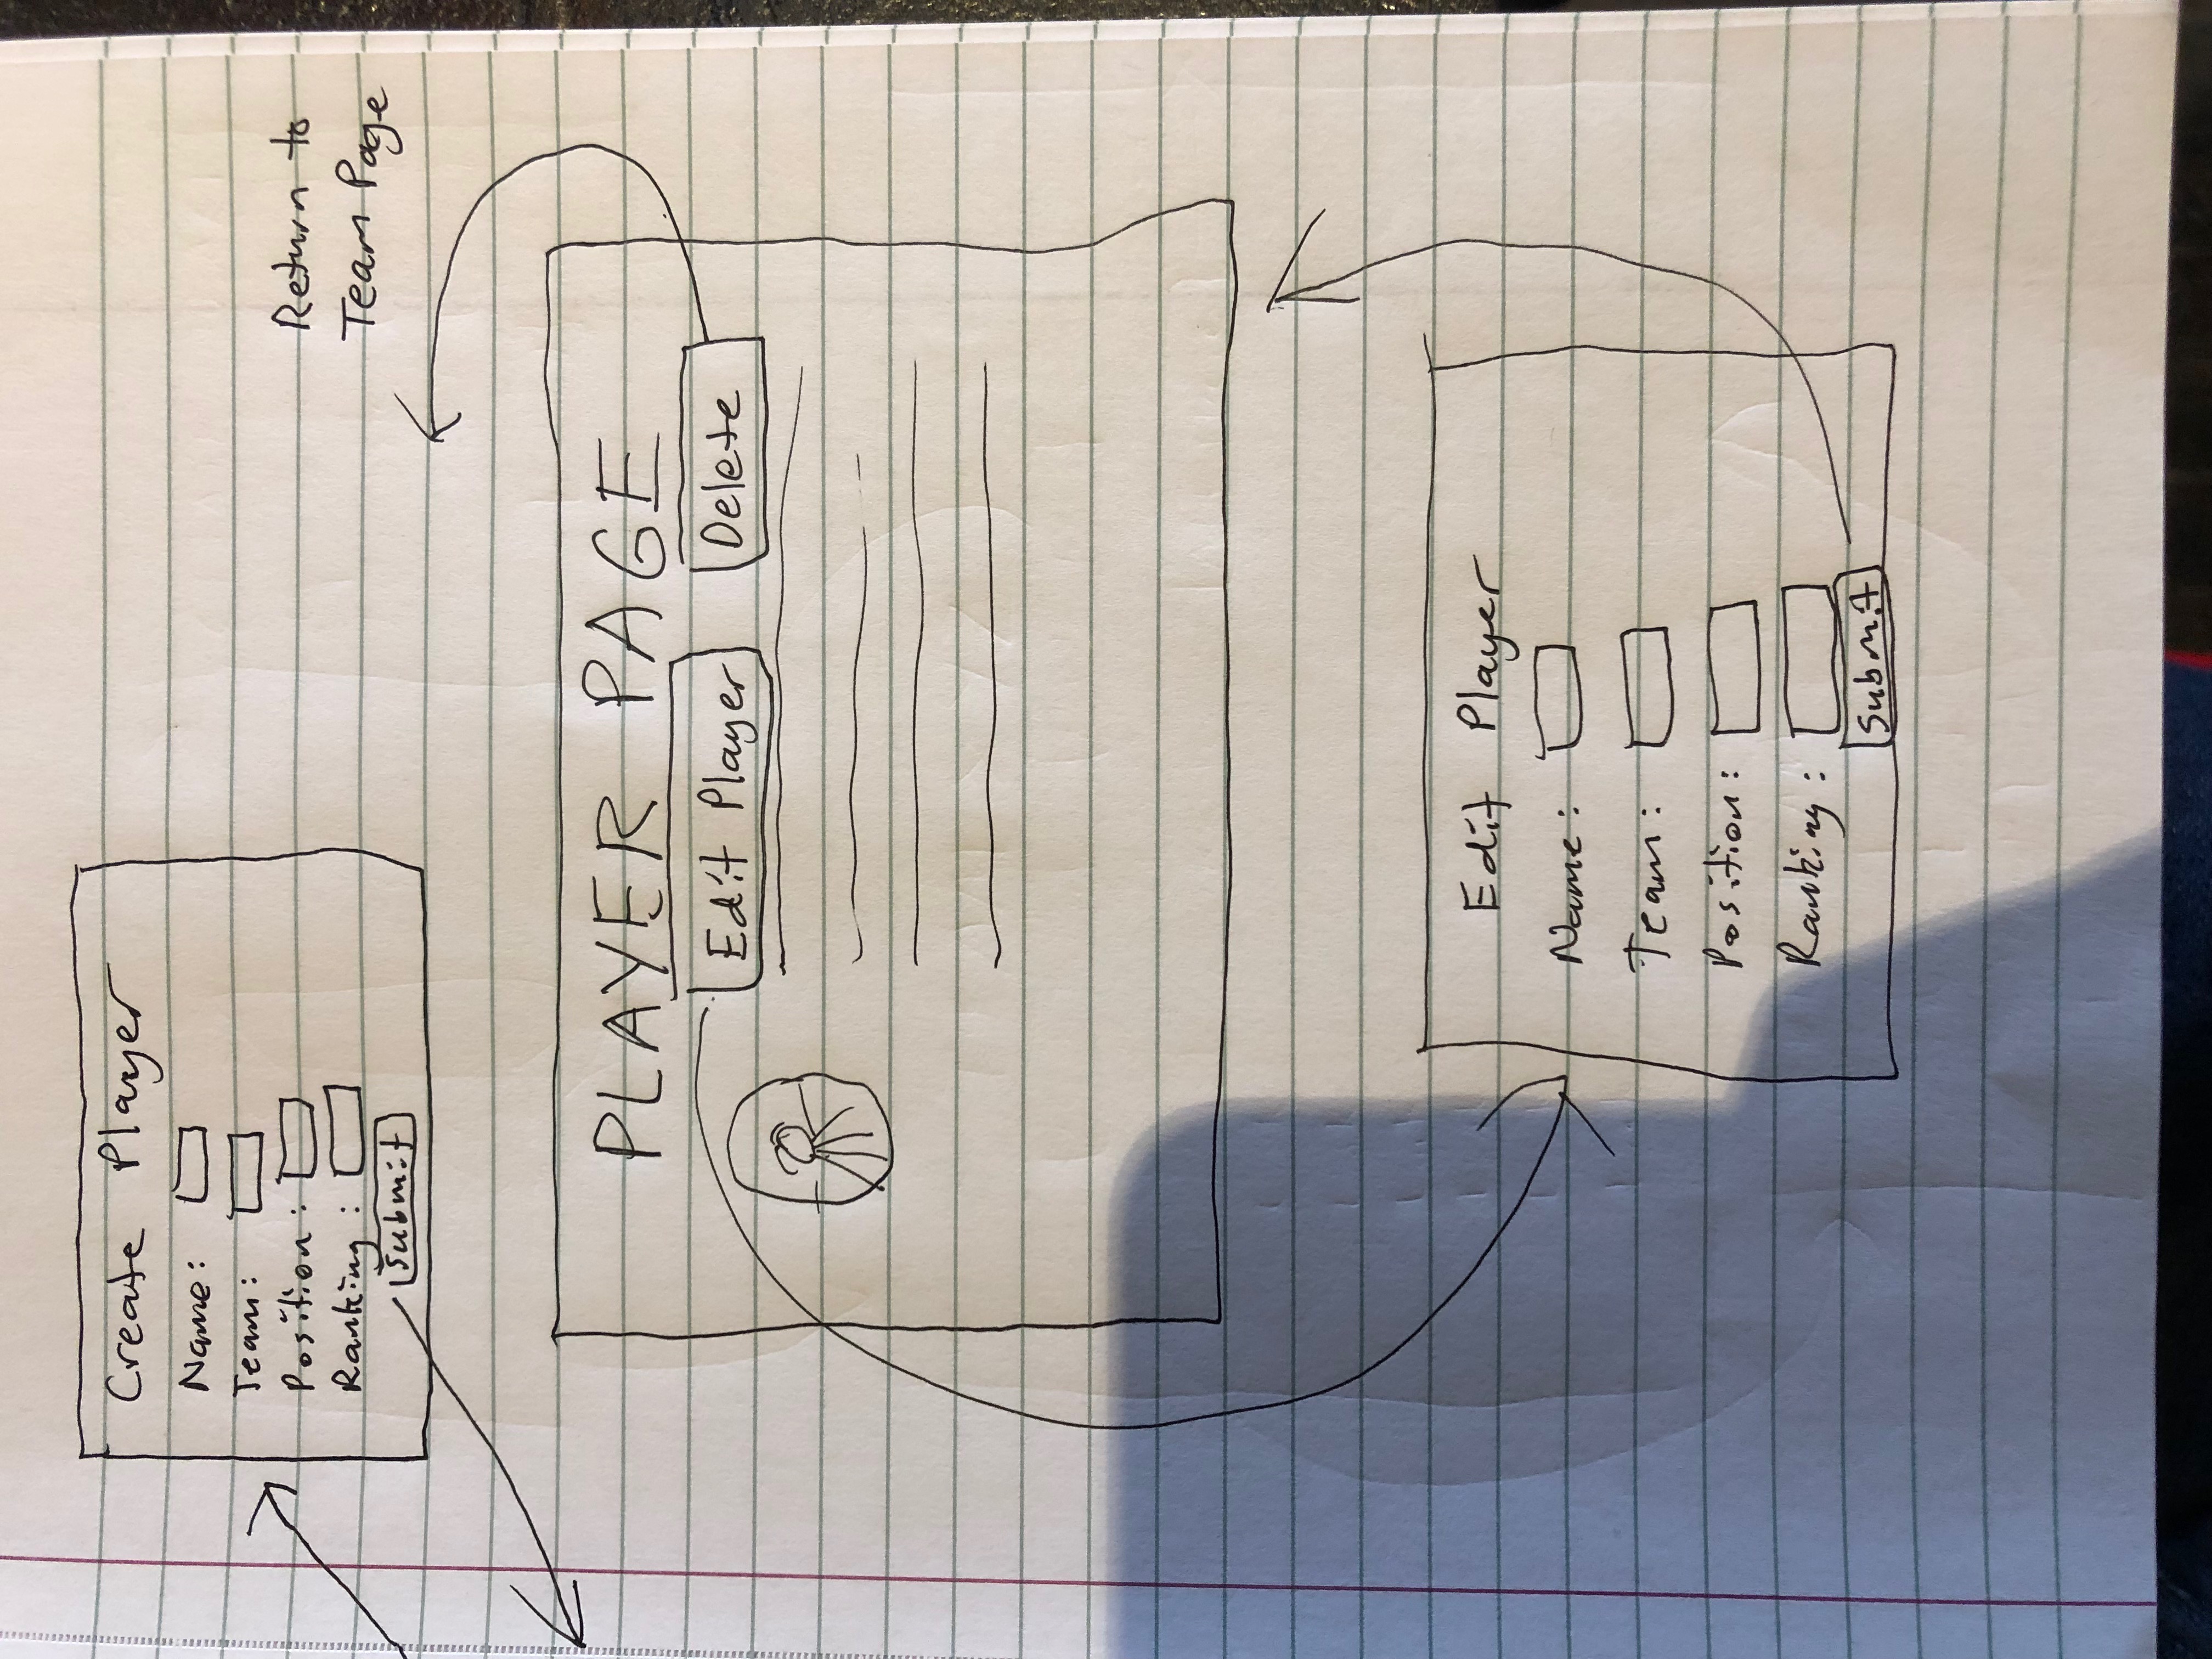 Create Player
Name:
Team:
Position:
Ranking:
Submit
Return to
Team Page
PLAYER PAGE
Edit Player
Delete
Edit Player
Name:
Team:
Position:
Ranking:
Submit